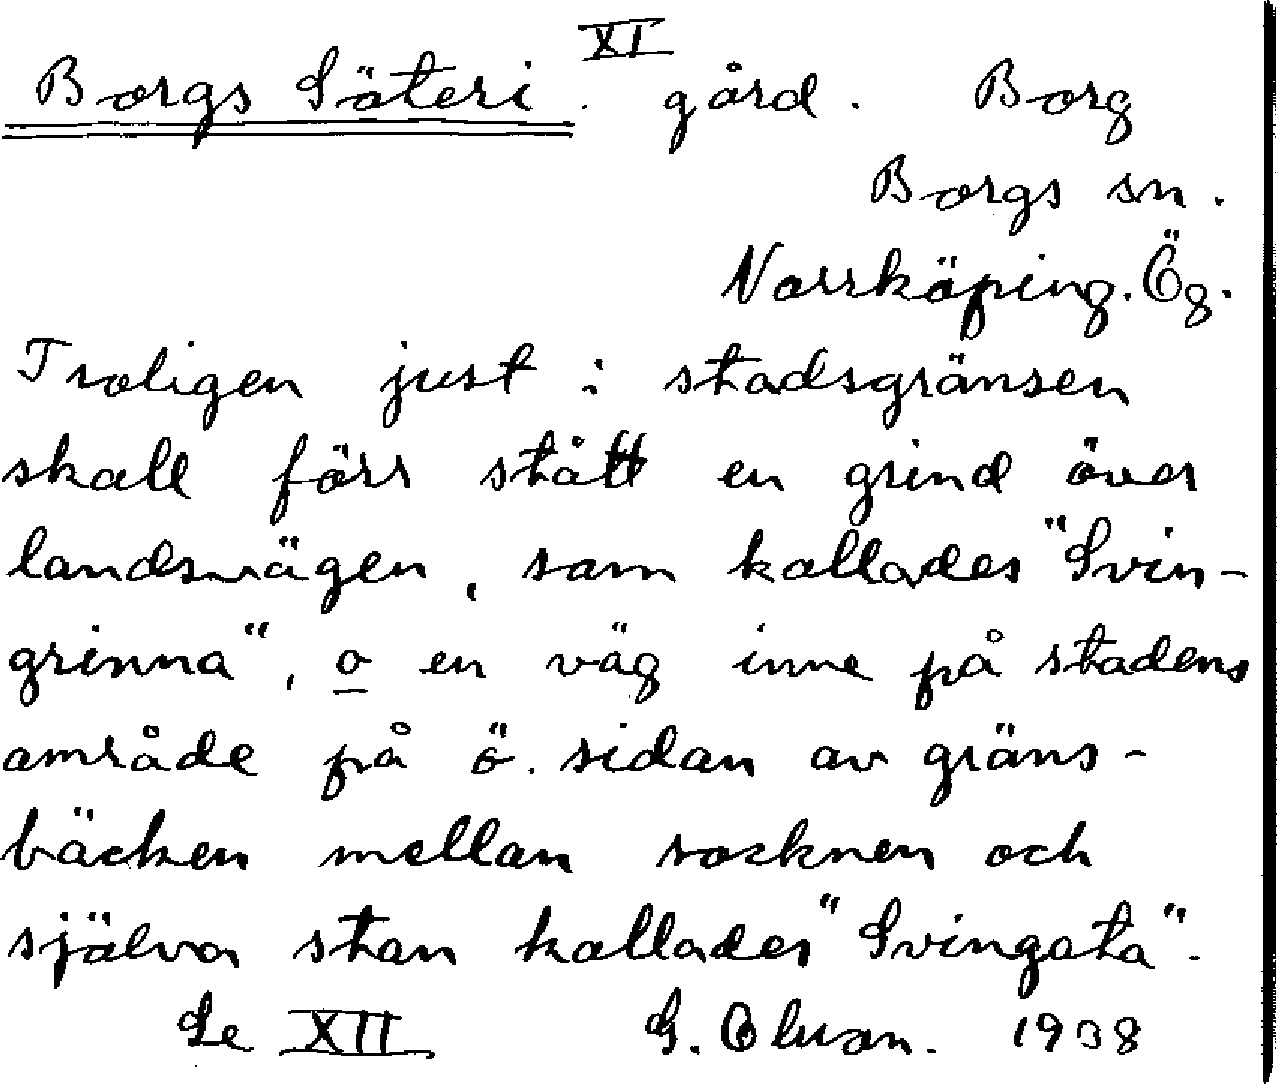 Borgs Säteri. XI gård. Borg
Borgs sn.
Norrköping. Ög.
Troligen just i stadsgränsen
skall förr stått en grind över
landsvägen, som kallades "Svin-
grinna", o en väg inne på stadens
område på ö. sidan av gräns-
bäcken mellan socknen och
själva stan kallades "Svingata".
Se XII G. Olson. 1938